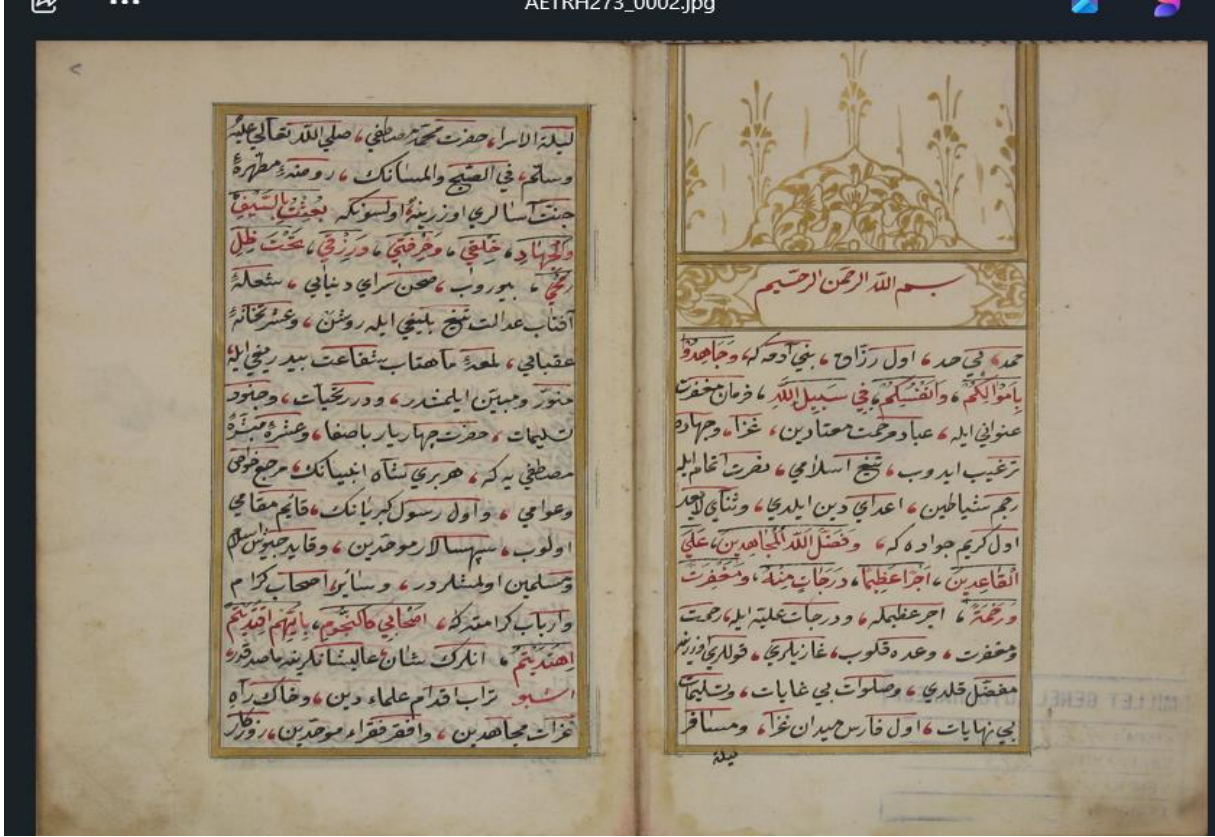 AETRH273_0002.jpg
بسم الله الرحمن الرحيم
حمد بي حد، اول رزاق، بني آدمه كه، وجاهدوا
بِاَمْوَالِكُمْ، وَاَنْفُسِكُمْ، فِي سَبِيلِ اللّٰهِ، فرمان مغفرت
عنواني ايله، عباد مرحمت معتادين، غزا، وجهاده
ترغيب ايدوب، تيغ اسلامي، نصرت اتمام ايله
رجم شياطين، اعداي دين ايلدي، وثناي لايعد
اول كريم جواده كه، وفضل الله المجاهدين، علي
القاعدين، اجرا عظيما، درجات منه، ومغفرت
ورحمة، اجر عظيمله، ودرجات عليه ايله، رحمت
ومغفرت، وعده قلوب، غازيلري، قوللري اوزرينه
مفضل قلدي، وصلوات بي غايات، وتسليمات
بي نهايات، اول فارس ميدان غزا، ومسافر
ليلة
ليلة الاسرا، حضرت محمد مصطفي، صلي الله تعالي عليه
وسلم، في الصبح والمسانك، روضهٔ مطهرهٔ
جنت آسالري اوزرينه اولسونكه بعثت بالسيف
والجهاد، خلقي، وحرفتي، ورزقي، تحت ظل
رمحي، بيوروب، صحن سراي دنيايي، شعلهٔ
آفتاب عدالت تيغ بليغي ايله روشن، وعشرتخانهٔ
عقبايي، لمعهٔ ماهتاب شفاعت بيدريغي ايله
منور ومبين ايلمشدر، ودرر تحيات، وجنود
تسليمات، حضرت چهار يار باصفا، وعشرهٔ مبشرهٔ
مصطفي يه كه، هر بري شاه انبيانك، مرجع خواص
وعوامي، واول رسول كبريانك، قايم مقامي
اولوب، سپهسالار موحدين، وقايد جيوش اسلام
ومسلمين اولمشلردر، وسائر اصحاب كرام
وارباب كرامه دركه، اصحابي كالنجوم، بايهم اقتديتم
اهتديتم، انلرك شان عاليشانلرينه صدقدر
اشبو تراب اقدام علماء دين، وخاك راه
غزات مجاهدين، وافقر فقراء موحدين، روزكار